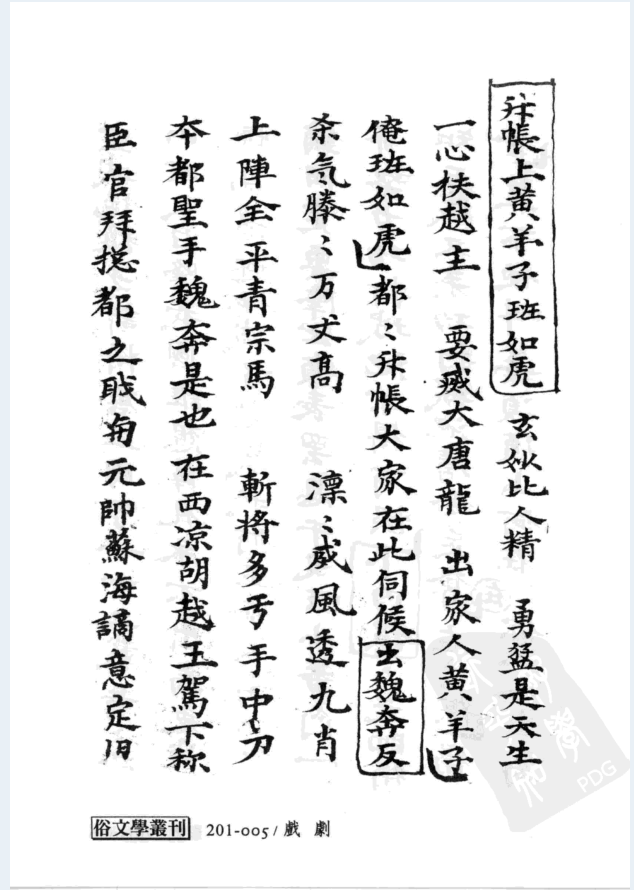 升帳上黄羊子班如虎 玄妙比人精 勇猛是天生
一心扶越主 要滅大唐龍 出家人黄羊子
俺班如虎 都〻升帳大家在此伺候 出魏奔反
杀氣騰〻万丈高 凛〻威風透九肖
上陣全平青宗馬 斬将多亏手中刀
夲都聖手魏奔是也 在西凉胡越王駕下称
臣官拜捴都之职 元帥蘇海謫意定旧
俗文學叢刊 201-005/戲 劇
PDG